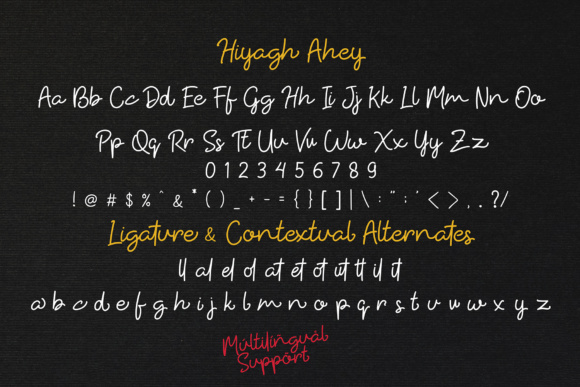 Hiyagh Ahey
Aa Bb Cc Dd Ee Ff Gg Hh Ii Jj Kk Ll Mm Nn Oo
Pp Qq Rr Ss Tt Uu Vu Ww Xx Yy Zz
0 1 2 3 4 5 6 7 8 9
! @ # $ % ^ & * ( ) _ + - = { } [ ] | \ : " ; ' < > , . ?/
Ligature & Contextual Alternates
ll al el ol at et ot utt tt il it
a b c d e f g h i j k l m n o p q r s t u v w x y z
Múltilíñguàl
Suppórt